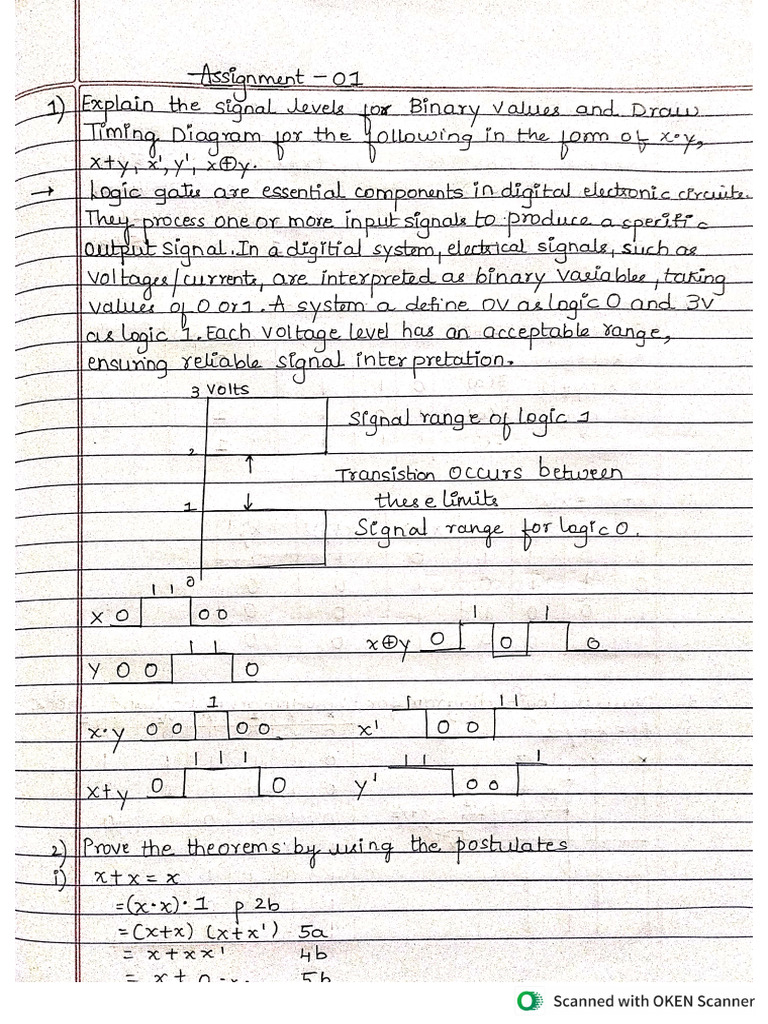 Assignment - 01
1) Explain the signal levels for Binary values and Draw
Timing Diagram for the following in the form of x·y,
x+y, x', y', x⊕y.
→ Logic gates are essential components in digital electronic circuits.
They process one or more input signals to produce a specific
output signal. In a digitial system, electrical signals, such as
voltages/currents, are interpreted as binary variables, taking
values of 0 or 1. A system a define 0V as logic 0 and 3V
as logic 1. Each voltage level has an acceptable range,
ensuring reliable signal interpretation.
3 Volts
Signal range of logic 1
2
Transistion occurs between
these limits
1
Signal range for logic 0.
0
x 0 1 1 0 0
x⊕y 0 1 0 1 0
y 0 0 1 1 0
x·y 0 0 1 0 0
x' 1 0 0 1 1
x+y 0 1 1 1 0
y' 1 1 0 0 1
2) Prove the theorems by using the postulates
i) x+x = x
=(x·x)·1 p 2b
=(x+x) (x+x') 5a
= x+xx' 4b
= x+0 5b
Scanned with OKEN Scanner